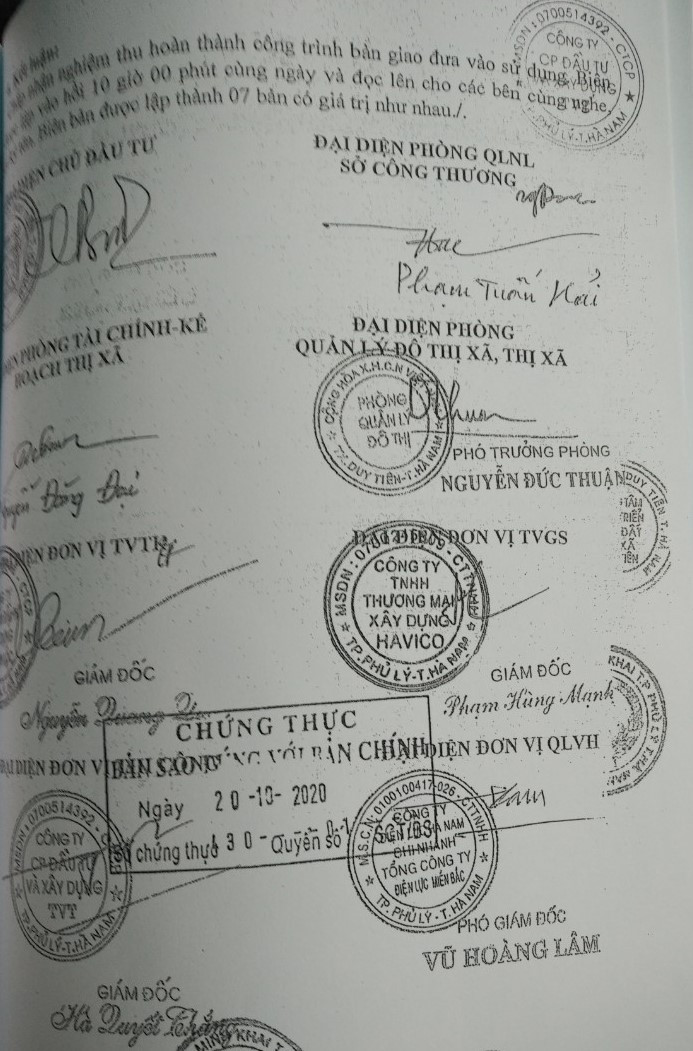 Kết luận:
nhận nghiệm thu hoàn thành công trình bàn giao đưa vào sử dụng. Biên
lập vào hồi 10 giờ 00 phút cùng ngày và đọc lên cho các bên cùng nghe,
Biên bản được lập thành 07 bản có giá trị như nhau./.
MSDN: 0700514392 - CTCP
CÔNG TY
CP ĐẦU TƯ
XÂY DỰNG
TP.PHỦ LÝ-T.HÀ NAM
DIỆN CHỦ ĐẦU TƯ
ĐẠI DIỆN PHÒNG QLNL
SỞ CÔNG THƯƠNG
Phạm Tuấn Hải
DIỆN PHÒNG TÀI CHÍNH-KẾ
HOẠCH THỊ XÃ
ĐẠI DIỆN PHÒNG
QUẢN LÝ ĐÔ THỊ XÃ, THỊ XÃ
CỘNG HÒA X.H.C.N VIỆT NAM
PHÒNG
QUẢN LÝ
ĐÔ THỊ
TX. DUY TIÊN-T.HÀ NAM
PHÓ TRƯỞNG PHÒNG
NGUYỄN ĐỨC THUẬN
DUY TIÊN T. HÀ NAM
TÂM
TRIỂN
ĐẤT
XÃ
TIÊN
DIỆN ĐƠN VỊ TVTK
ĐẠI DIỆN ĐƠN VỊ TVGS
CTTNHH
CÔNG TY
TNHH
THƯƠNG MẠI
XÂY DỰNG
HAVICO
TP.PHỦ LÝ-T.HÀ NAM
GIÁM ĐỐC
Nguyễn Quang
GIÁM ĐỐC
Phạm Hùng Mạnh
KHAI T.P PHỦ LÝ T.HÀ NAM
CHỨNG THỰC
BẢN SAO ĐÚNG VỚI BẢN CHÍNH
Ngày 20-10-2020
Số chứng thực 130 - Quyển số 01 SCT/BS
ĐẠI DIỆN ĐƠN VỊ
ĐẠI DIỆN ĐƠN VỊ QLVH
MSDN: 0700514392 -
CÔNG TY
CP ĐẦU TƯ
VÀ XÂY DỰNG
TVT
TP.PHỦ LÝ-T.HÀ NAM
M.S.C.N: 0100100417-026-CTTNHH
CÔNG TY
ĐIỆN LỰC HÀ NAM
CHI NHÁNH
TỔNG CÔNG TY
ĐIỆN LỰC MIỀN BẮC
TP.PHỦ LÝ - T.HÀ NAM
PHÓ GIÁM ĐỐC
VŨ HOÀNG LÂM
GIÁM ĐỐC
Hà Quyết Thắng
MINH KHAI T.